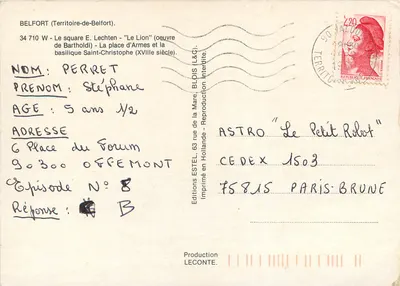 BELFORT (Territoire-de-Belfort).
34 710 W - Le square E. Lechten - "Le Lion" (oeuvre
de Bartholdi) - La place d'Armes et la
basilique Saint-Christophe (XVIIIe siècle).
NOM : PERRET
PRENOM : Stéphane
AGE : 5 ans 1/2
ADRESSE
6 Place du Forum
90300 OFFEMONT
Episode N° 8
Réponse : B
Editions ESTEL, 63 rue de la Mare, BLOIS (L&C).
Imprimé en Hollande - Reproduction interdite.
2,20
ASTRO "Le Petit Robot"
CEDEX 1503
75815 PARIS-BRUNE
Production
LECONTE.